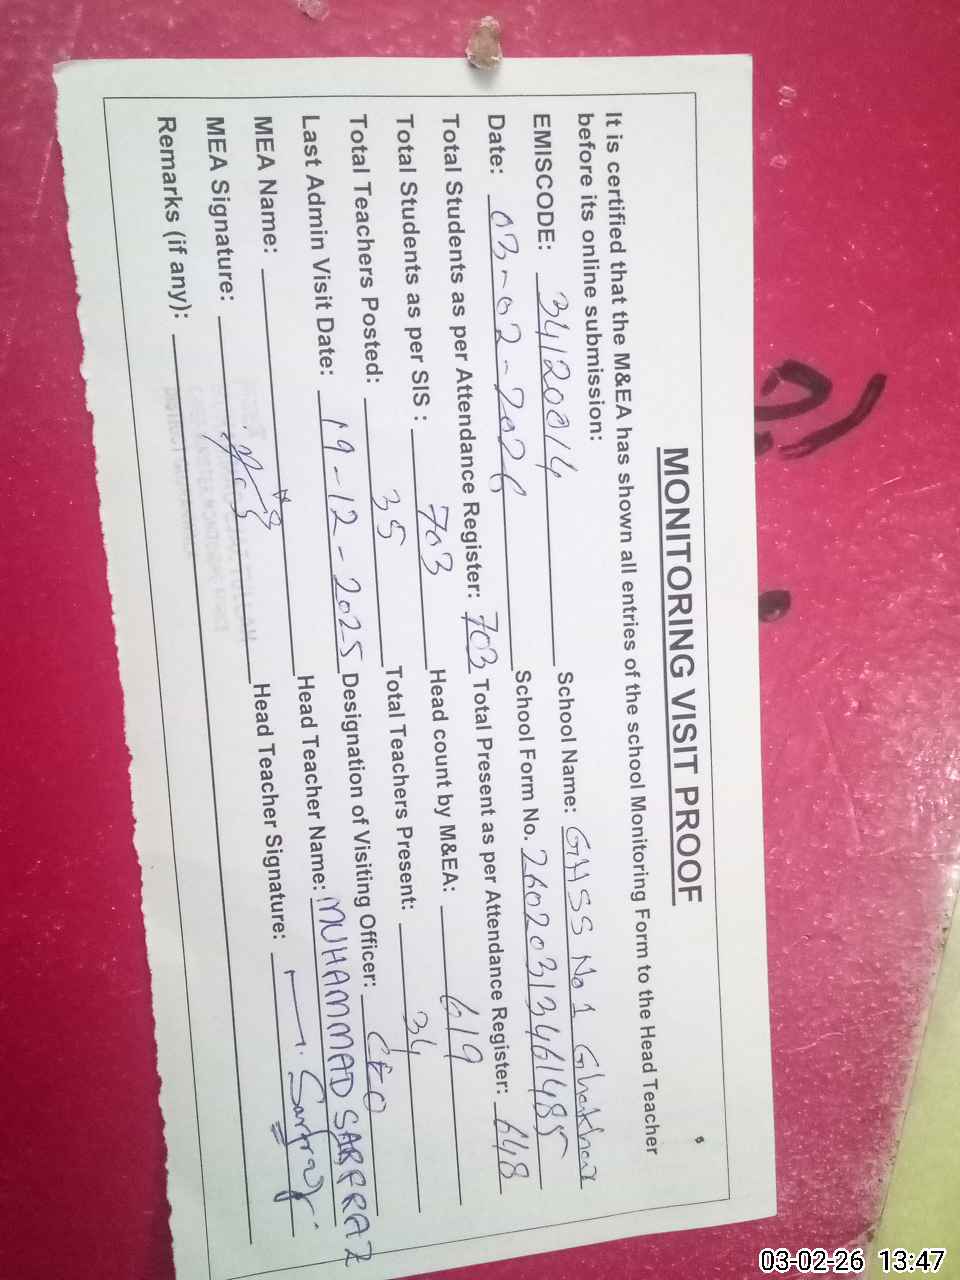 MONITORING VISIT PROOF
It is certified that the M&EA has shown all entries of the school Monitoring Form to the Head Teacher
before its online submission:
EMISCODE: 34120014 School Name: GHSS No 1 Ghakhar
Date: 03-02-2026 School Form No. 26020313461485
Total Students as per Attendance Register: 703 Total Present as per Attendance Register: 648
Total Students as per SIS : 703 Head count by M&EA: 619
Total Teachers Posted: 35 Total Teachers Present: 34
Last Admin Visit Date: 19-12-2025 Designation of Visiting Officer: CEO
MEA Name: Head Teacher Name: MUHAMMAD SARFRAZ
MEA Signature: Head Teacher Signature: Sarfraz
Remarks (if any):
03-02-26 13:47